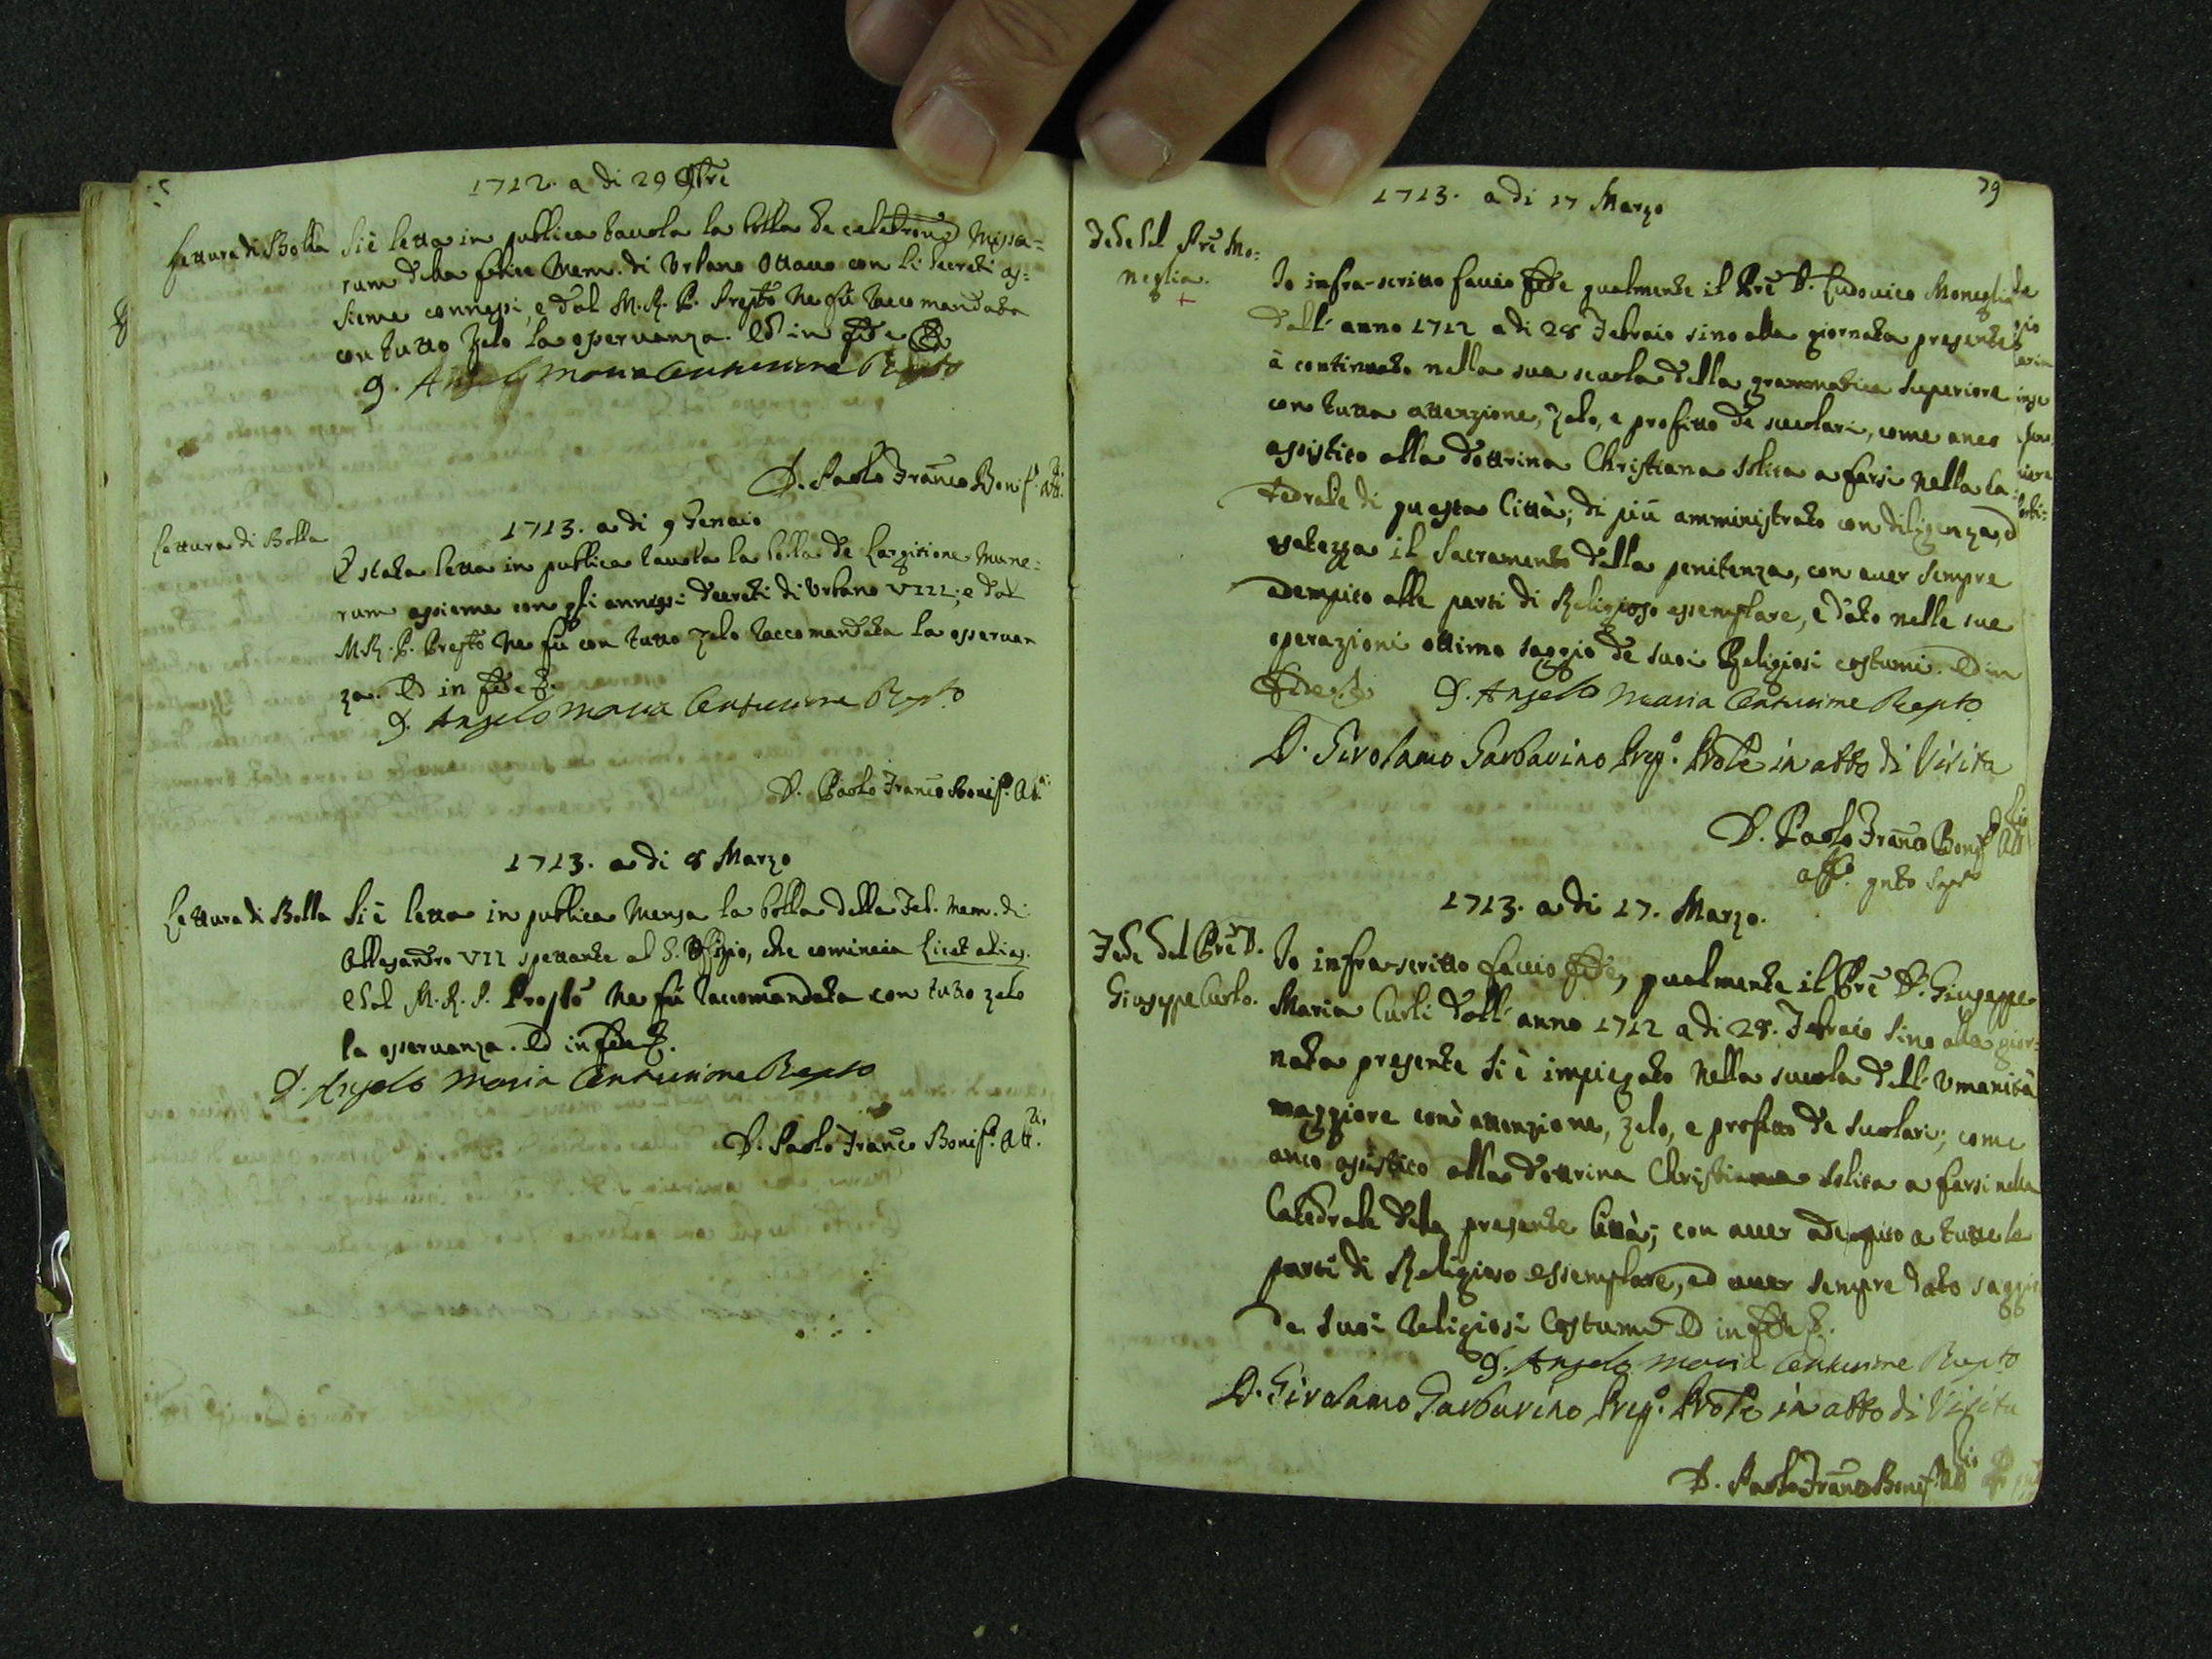 1712. a di 29 9bre
Lettura di Bolla
Si è letta in publica tavola la bolla de celebrone Missa=
rum della felice Mem. di Urbano Ottavo con li decreti as=
sieme connessi, e dal M. R. P. Prepto ne fù raccomandata
con tutto zelo la osservanza. Ed in fede &
D. Angelo Maria Centurione Repto
D. Paolo Franco Bonif. Att.
1713. a di 9 Genaio
Lettura di Bolla
È stata letta in publica tavola la bolla de Largitione Mune=
rum assieme con gli annessi decreti di Urbano VIII; e dal
M.R. P. Prepto ne fù con tutto zelo raccomandata la osservan
za. Ed in fede &.
D. Angelo Maria Centurione Repto
D. Paolo Franco Bonif. Att.
1713. a di 8 Marzo
Lettura di Bolla
Si è letta in publica Mensa la bolla della Fel. Mem. di
Allesandro VII spettante al S. Uffizio, che comincia Licet alias.
e dal M. R. P. Prepto ne fù raccomandata con tutto zelo
la osservanza. Ed in fede &.
D. Angelo Maria Centurione Repto
D. Paolo Franco Bonif. Att.
79
1713. a di 17 Marzo
Fede del Pre Mo=
neglia.
+
Io infra-scritto faccio fede qualmente il Pre D. Ludovico Moneglia
dall' anno 1712 a di 28 Febraio sino alla giornata presente
à continuato nella sua scuola della grammatica superiore
con tutta attenzione, zelo, e profitto de scuolari, come anco
assistito alla dottrina Christiana solita a farsi nella Ca=
tedrale di questa Città; di più amministrato con diligenza, ed
esatezza il Sacramento della penitenza, con aver sempre
adempito alle parti di Religioso essemplare, e dato nelle sue
operazioni ottimo saggio de suoi Religiosi costumi. Ed in
fede &
D. Angelo Maria Centurione Repto
D. Girolamo Garbarino Prep. Prole in atto di Visita
D. Paolo Franco Bonif. Att
1713. a di 17. Marzo.
Fede del Pre D.
Giuseppe Carlo.
Io infra-scritto faccio fede, qualmente il Pre D. Giuseppe
Maria Carli dall' anno 1712 a di 28. Febraio sino alla gior=
nata presente si è impiegato nella scuola dell' Umanità
maggiore con attenzione, zelo, e profitto de scuolari; come
anco assistito alla dottrina Christiana solita a farsi nella
Catedrale dela presente Città; con aver adempito a tutte le
parti di Religioso essemplare, ed aver sempre dato saggio
de suoi religiosi Costumi Ed in fede &.
D. Angelo Maria Centurione Repto
D. Girolamo Garbarino Prep. Prole in atto di Visita
D. Paolo Franco Bonif. Att